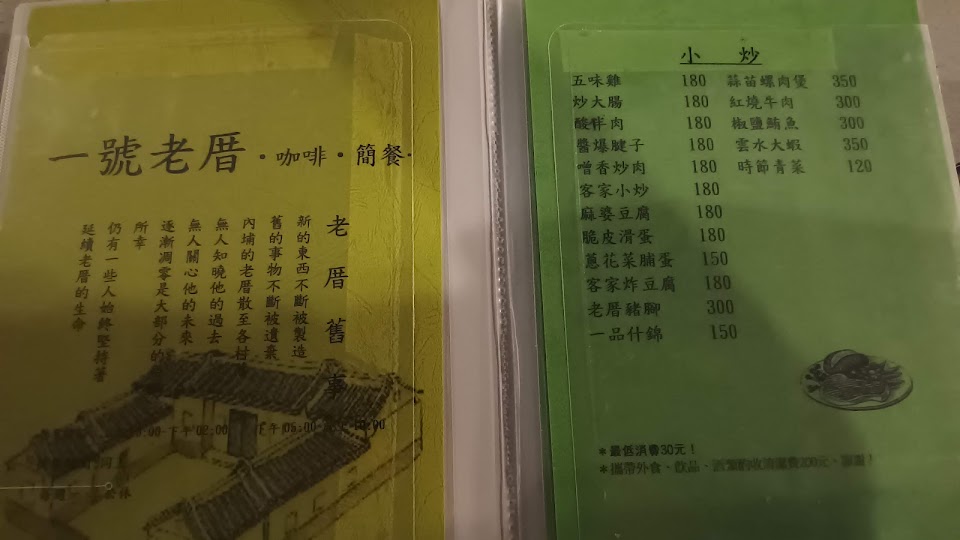 一號老厝·咖啡·簡餐·
老厝舊事
新的東西不斷被製造
舊的事物不斷被遺棄
內埔的老厝散至各村
無人知曉他的過去
無人關心他的未來
逐漸凋零是大部分的
所幸
仍有一些人始終堅持著
延續老厝的生命
小 炒
五味雞 180 蒜苗螺肉煲 350
炒大腸 180 紅燒牛肉 300
酸拌肉 180 椒鹽鮪魚 300
醬爆腱子 180 雲水大蝦 350
噌香炒肉 180 時節青菜 120
客家小炒 180
麻婆豆腐 180
脆皮滑蛋 180
蔥花菜脯蛋 150
客家炸豆腐 180
老厝豬腳 300
一品什錦 150
*最低消費30元！
*攜帶外食、飲品、酒類酌收清潔費200元，謝謝！